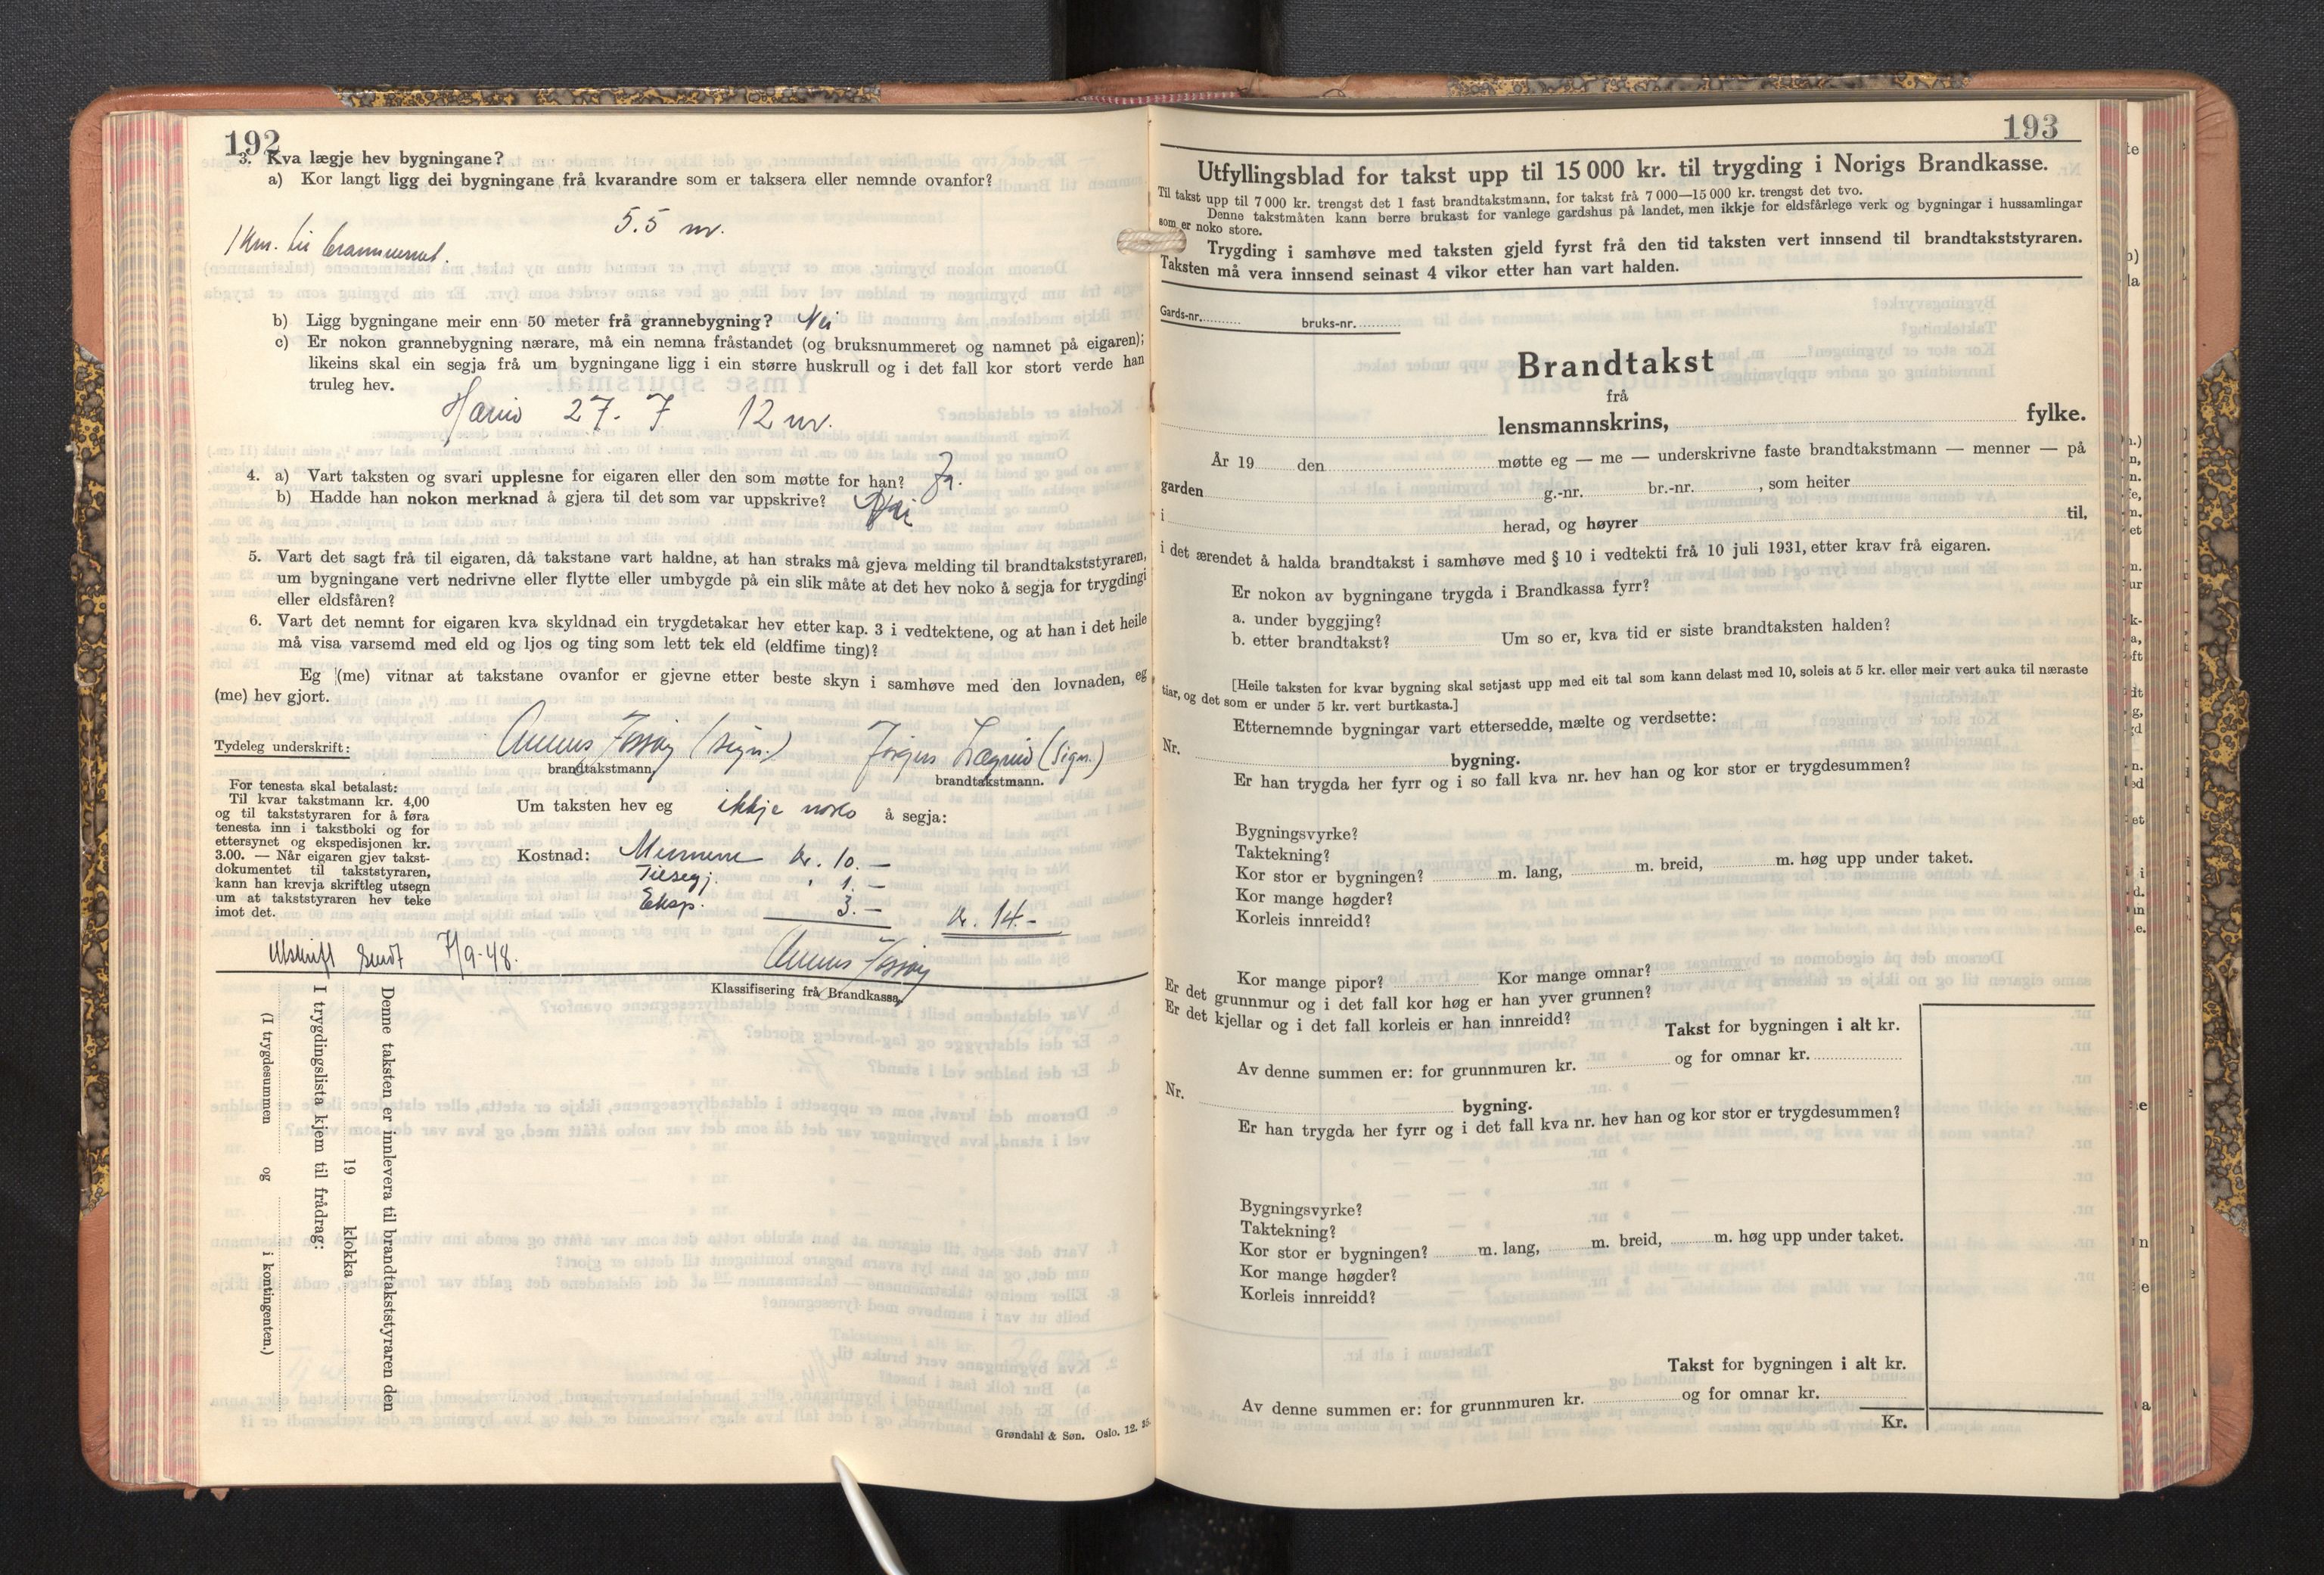 192
3. Kva lægje hev bygningane?
a) Kor langt ligg dei bygningane frå kvarandre som er taksera eller nemnde ovanfor?
5.5 m.
1 km. til brannvernet.
b) Ligg bygningane meir enn 50 meter frå grannebygning? Nei
c) Er nokon grannebygning nærare, må ein nemna fråstandet (og bruksnummeret og namnet på eigaren);
likeins skal ein segja frå um bygningane ligg i ein større huskrull og i det fall kor stort verde han
truleg hev.
27. 7 12 m.
4. a) Vart taksten og svari upplesne for eigaren eller den som møtte for han? Ja.
b) Hadde han nokon merknad å gjera til det som var uppskrive? Nei
5. Vart det sagt frå til eigaren, då takstane vart haldne, at han straks må gjeva melding til brandtakststyraren,
um bygningane vert nedrivne eller flytte eller umbygde på ein slik måte at det hev noko å segja for trygdingi
eller eldsfåren?
6. Vart det nemnt for eigaren kva skyldnad ein trygdetakar hev etter kap. 3 i vedtektene, og at han i det heile
må visa varsemd med eld og ljos og ting som lett tek eld (eldfime ting)?
Eg (me) vitnar at takstane ovanfor er gjevne etter beste skyn i samhøve med den lovnaden, eg
(me) hev gjort.
Tydeleg underskrift: (sign.) (sign.)
brandtakstmann, brandtakstmann.
For tenesta skal betalast:
Til kvar takstmann kr. 4,00
og til takststyraren for å føra
tenesta inn i takstboki og for
ettersynet og ekspedisjonen kr.
3.00. — Når eigaren gjev takst-
dokumentet til takststyraren,
kann han krevja skriftleg utsegn
um at takststyraren hev teke
imot det.
Um taksten hev eg ikkje noko å segja:
Kostnad: Mennene kr. 10.—
Tilsegj. " 1.—
Eksp. 3.— kr. 14.-
Utskrift sendt 7/9-48.
Klassifisering frå Brandkassa,
Denne taksten er innlevera til brandtakststyraren den
19 klokka
I trygdingslista kjem til frådrag:
(I trygdesummen og i kontingenten.)
Grøndahl & Søn. Oslo. 12. 35.
193
Utfyllingsblad for takst upp til 15 000 kr. til trygding i Norigs Brandkasse.
Til takst upp til 7 000 kr. trengst det 1 fast brandtakstmann, for takst frå 7 000—15 000 kr. trengst det tvo.
Denne takstmåten kann berre brukast for vanlege gardshus på landet, men ikkje for eldsfårlege verk og bygningar i hussamlingar
som er noko store.
Trygding i samhøve med taksten gjeld fyrst frå den tid taksten vert innsend til brandtakststyraren.
Taksten må vera innsend seinast 4 vikor etter han vart halden.
Gards-nr. bruks-nr.
Brandtakst
frå
lensmannskrins, fylke.
År 19 den møtte eg — me — underskrivne faste brandtakstmann — menner — på
garden g.-nr. br.-nr. , som heiter
i herad, og høyrer til,
i det ærendet å halda brandtakst i samhøve med § 10 i vedtekti frå 10 juli 1931, etter krav frå eigaren.
Er nokon av bygningane trygda i Brandkassa fyrr?
a. under byggjing?
b. etter brandtakst? Um so er, kva tid er siste brandtaksten halden?
[Heile taksten for kvar bygning skal setjast upp med eit tal som kann delast med 10, soleis at 5 kr. eller meir vert auka til næraste
tiar, og det som er under 5 kr. vert burtkasta.]
Etternemnde bygningar vart ettersedde, mælte og verdsette:
Nr. bygning.
Er han trygda her fyrr og i so fall kva nr. hev han og kor stor er trygdesummen?
Bygningsvyrke?
Taktekning?
Kor stor er bygningen? m. lang, m. breid, m. høg upp under taket.
Kor mange høgder?
Korleis innreidd?
Kor mange pipor? Kor mange omnar?
Er det grunnmur og i det fall kor høg er han yver grunnen?
Er det kjellar og i det fall korleis er han innreidd?
Takst for bygningen i alt kr.
Av denne summen er: for grunnmuren kr. og for omnar kr.
Nr. bygning.
Er han trygda her fyrr og i det fall kva nr. hev han og kor stor er trygdesummen?
Bygningsvyrke?
Taktekning?
Kor stor er bygningen? m. lang, m. breid, m. høg upp under taket.
Kor mange høgder?
Korleis innreidd?
Takst for bygningen i alt kr.
Av denne summen er: for grunnmuren kr. og for omnar kr.
Kr.